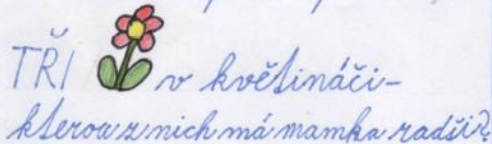 TŘI v květináči-
kterou z nich má mamka radši?